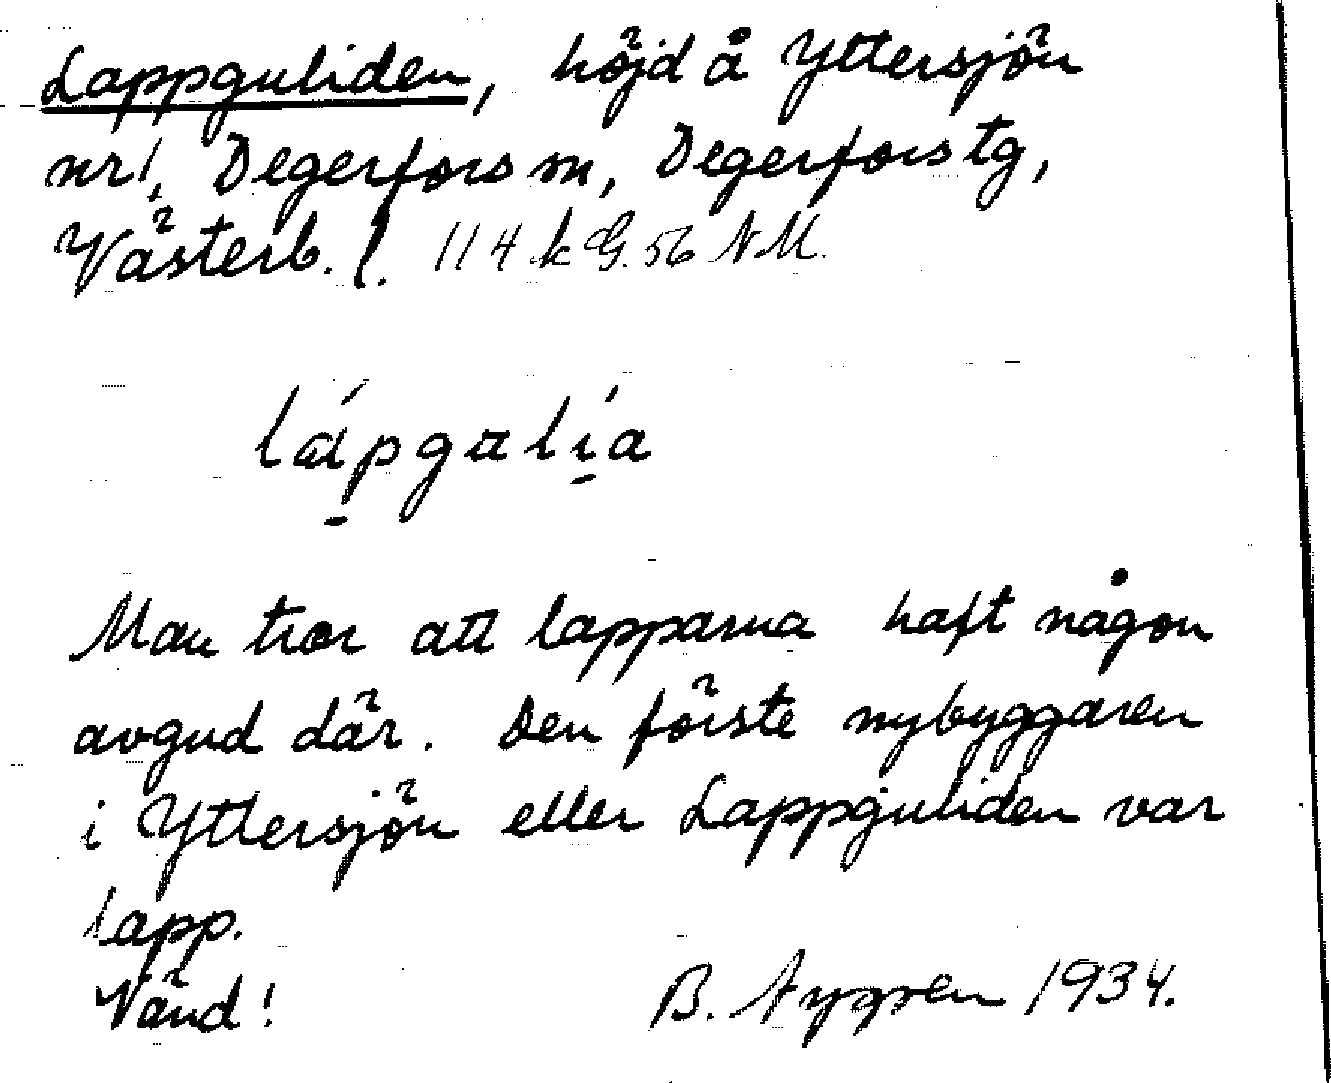 Lappguliden, höjd å Yttersjön
nr 1, Degerfors sn, Degerfors tg,
Västerb. l. 114 k G. 56 NM.
lápgɯlía
Man tror att lapparna haft någon
avgud där. Den förste nybyggaren
i Yttersjön eller Lappguliden var
lapp.
Vänd! B. Nygren 1934.